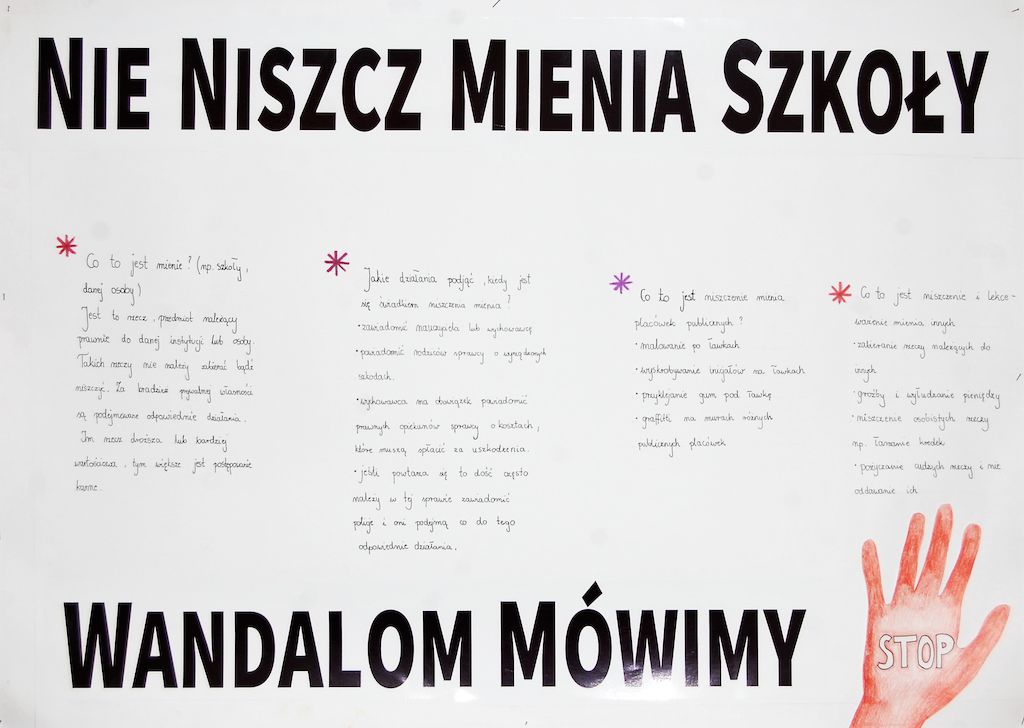 NIE NISZCZ MIENIA SZKOŁY
Co to jest mienie? (np. szkoły,
danej osoby)
Jest to rzecz, przedmiot należący
prawnie do danej instytucji lub osoby.
Takich rzeczy nie należy zabierać bądź
niszczyć. Za kradzież prywatnej własności
są podejmowane odpowiednie działania.
Im rzecz droższa lub bardziej
wartościowa, tym większe jest postępowanie
karne.
Jakie działania podjąć, kiedy jest
się świadkiem niszczenia mienia?
• zawiadomić nauczyciela lub wychowawcę
• powiadomić rodziców sprawcy o wyrządzonych
szkodach.
• wychowawca ma obowiązek powiadomić
prawnych opiekunów sprawcy o kosztach,
które muszą spłacić za uszkodzenia.
• jeśli powtarza się to dość często
należy w tej sprawie zawiadomić
policję i oni podejmą co do tego
odpowiednie działania.
Co to jest niszczenie mienia
placówek publicznych?
• malowanie po ławkach
• wyskrobywanie inicjałów na ławkach
• przyklejanie gum pod ławkę
• graffiti, na murach różnych
publicznych placówek
Co to jest niszczenie i lekce-
ważenie mienia innych
• zabieranie rzeczy należących do
innych
• groźby i wyłudzanie pieniędzy
• niszczenie osobistych rzeczy
np. łamanie kredek
• pożyczanie cudzych rzeczy i nie
oddawanie ich
WANDALOM MÓWIMY
STOP